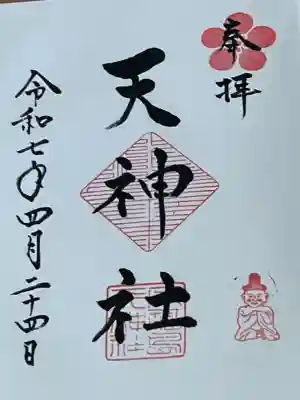 奉拝
天神社
令和七年四月二十四日